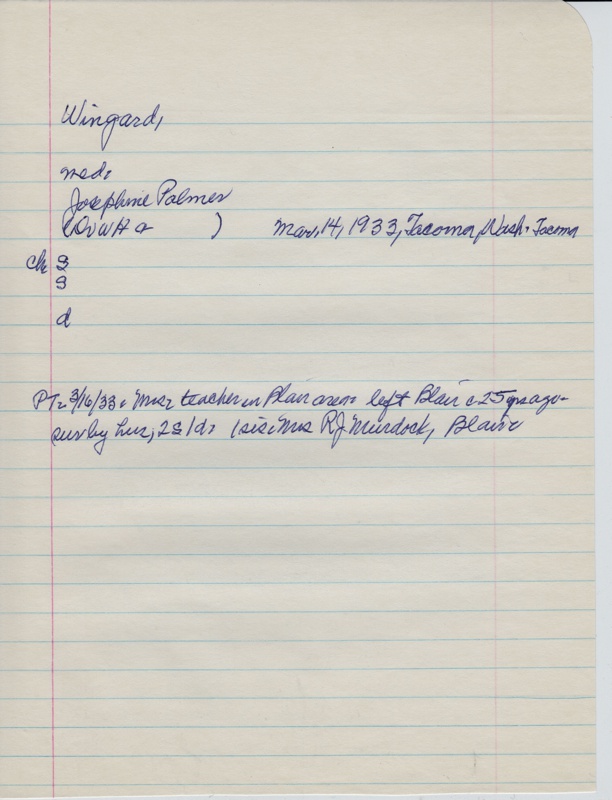 Wingard,
med:
Josephine Palmer
(DvWH 2 ) Mar, 14, 1933, Tacoma, Wash. Tacoma
ch S
S
d
PT: 3/16/33: teacher in Blair area left Blair c 25 yrs ago-
surv by hus, 2S 1d: 1 sis: Mrs R J Murdock, Blair